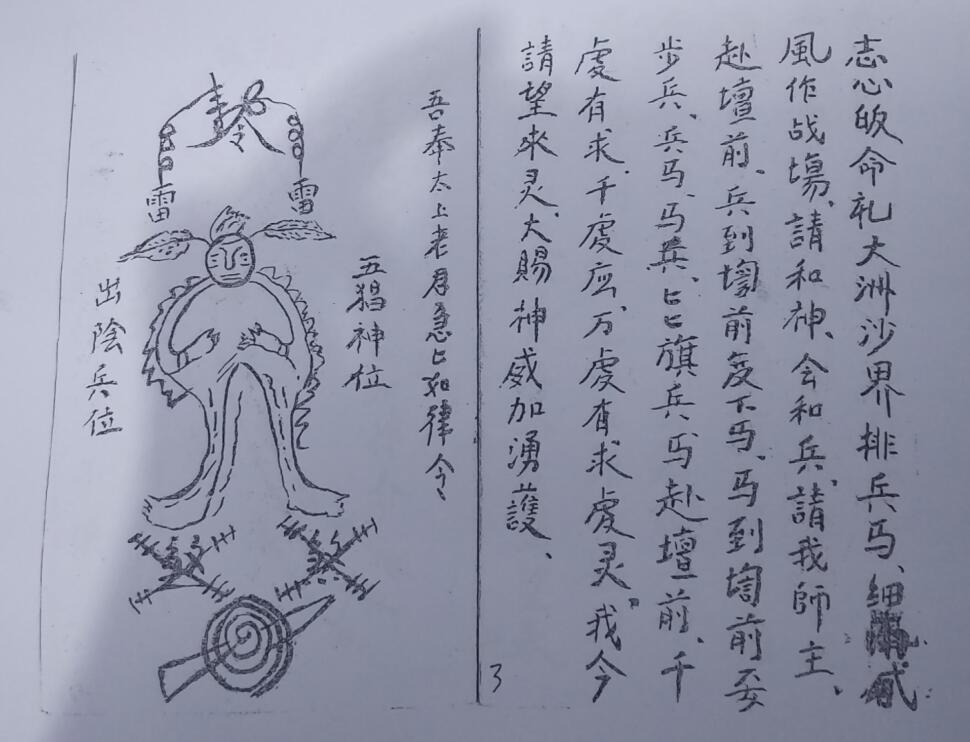 志心皈命礼大洲沙界排兵马、細
風作战場、請和神、会和兵、請我師主、
赴壇前、兵到壇前变下马、马到壇前
步兵、兵马、马兵、匕匕旗兵马赴壇前、千
處有求、千處应、万處有求處灵、我今
請望來灵、大賜神威加湧護、
3
吾奉太上老君急匕如律令
五猖神位
雷
雷
出陰兵位